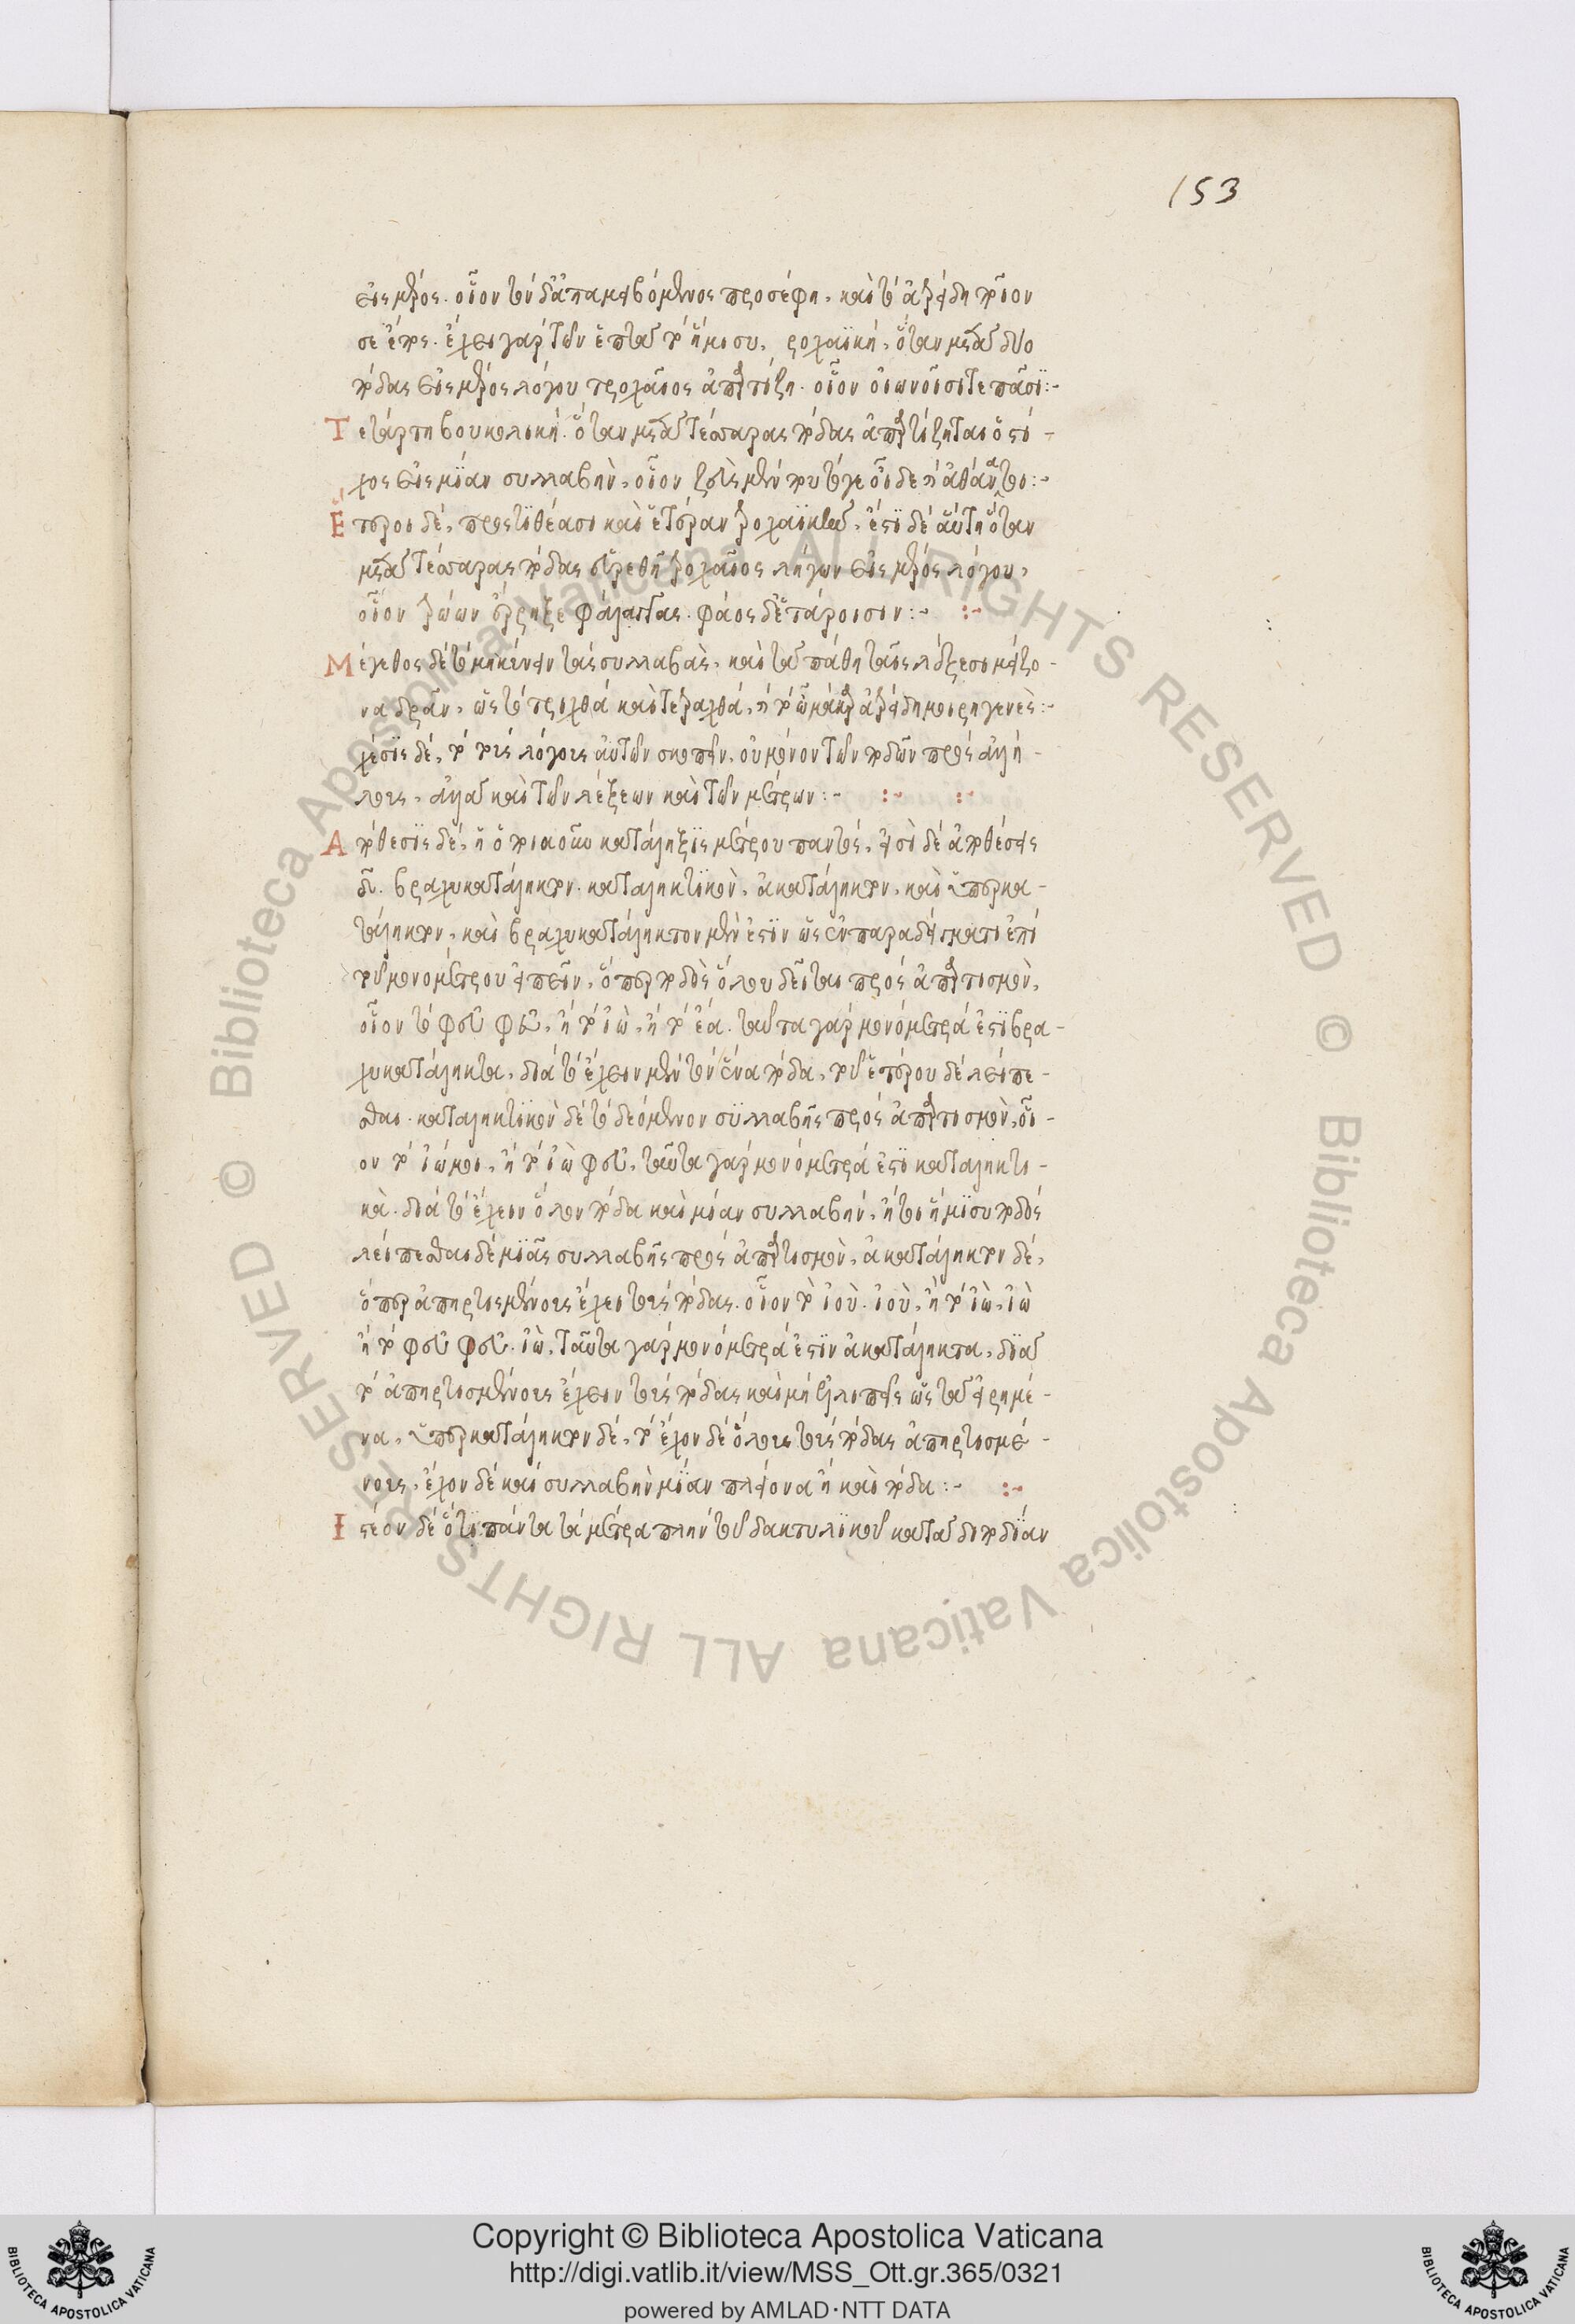 153
εἰς μέρος. οἷον τὸν δ' ἀπαμειβόμενος προσέφη. καὶ τὸ
σὲ ἔπος. ἔχει γὰρ τῶν ἑπτὰ τὸ ἥμισυ. τροχαϊκὴ, ὅταν μετὰ δύο
πόδας εἰς μέρος λόγου τροχαῖος ἀπαρτίζῃ. οἷον οἰωνοῖσί τε πᾶσι:-
Τετάρτη βουκολικὴ. ὅταν μετὰ τέσσαρας πόδας ἀπαρτίζηται ὁ στί-
χος εἰς μίαν συλλαβὴν, οἷον
Ἕτεροι δὲ, προστιθέασι καὶ ἑτέραν τροχαϊκὴν, ἔστι δὲ αὕτη ὅταν
μετὰ τέσσαρας πόδας εὑρεθῇ τροχαῖος λήγων εἰς μέρος λόγου,
οἷον τρώων ἔρρηξε φάλαγγας. φάος δ' ἑτάροισιν:-
Μέγεθος δὲ τὸ μηκύνειν τὰς συλλαβὰς, καὶ τὰ πάθη ταῖς λέξεσι μείζο-
να δρᾶν, ὡς τὸ τριχθά καὶ τετραχθά, ἢ τὸ ὦ μάκαρ ἀτρείδη μοιρηγενὲς:-
χέσις δὲ, τὸ τοὺς λόγους αὐτῶν σκοπεῖν, οὐ μόνον τῶν ποδῶν πρὸς ἀλή-
λους, ἀλλὰ καὶ τῶν λέξεων καὶ τῶν μέτρων:-
Ἀπόθεσις δὲ, ἡ ὁποιαοῦν κατάληξις μέτρου παντὸς, εἰσὶ δὲ ἀποθέσεις
δ. βραχυκατάληκτον. καταληκτικὸν, ἀκατάληκτον, καὶ ὑπερκα-
τάληκτον, καὶ βραχυκατάληκτον μέν ἐστιν ὡς ἐν παραδείγματι ἐπὶ
τοῦ μονομέτρου εἰπεῖν, ὅπερ ποδὸς ὅλου δεῖται πρὸς ἀπαρτισμὸν,
οἷον τὸ φεῦ φεῦ, ἢ τὸ ἰὼ, ἢ τὸ ἔα. ταῦτα γὰρ μονόμετρά ἐστι βρα-
χυκατάληκτα, διὰ τὸ ἔχειν μὲν τὸν ἕνα πόδα, τοῦ ἑτέρου δὲ λείπε-
σθαι. καταληκτικὸν δὲ τὸ δεόμενον συλλαβῆς πρὸς ἀπαρτισμὸν, οἷ-
ον τὸ ἰώ μοι, ἢ τὸ ἰὼ φεῦ, ταῦτα γὰρ μονόμετρά ἐστι καταληκτι-
κὰ. διὰ τὸ ἔχειν ὅλον πόδα καὶ μίαν συλλαβὴν, ἤτοι ἥμισυ ποδὸς
λείπεσθαι δὲ μιᾶς συλλαβῆς πρὸς ἀπαρτισμὸν, ἀκατάληκτον δὲ,
ὅπερ ἀπηρτισμένους ἔχει τοὺς πόδας. οἷον τὸ ἰοὺ. ἰοὺ, ἢ τὸ ἰὼ, ἰὼ
ἢ τὸ φεῦ φεῦ. ἰὼ, ταῦτα γὰρ μονόμετρά ἐστιν ἀκατάληκτα, διὰ
τὸ ἀπηρτισμένους ἔχειν τοὺς πόδας καὶ μὴ ἐλλιπεῖς ὡς τὰ εἰρημέ-
να, ὑπερκατάληκτον δὲ, τὸ ἔχον δὲ ὅλους τοὺς πόδας ἀπηρτισμέ-
νους, ἔχον δὲ καὶ συλλαβὴν μίαν πλείονα ἢ καὶ πόδα:-
Ἰστέον δὲ ὅτι πάντα τὰ μέτρα πλὴν τοῦ δακτυλικοῦ κατὰ διποδίαν
Copyright © Biblioteca Apostolica Vaticana
http://digi.vatlib.it/view/MSS_Ott.gr.365/0321
powered by AMLAD·NTT DATA